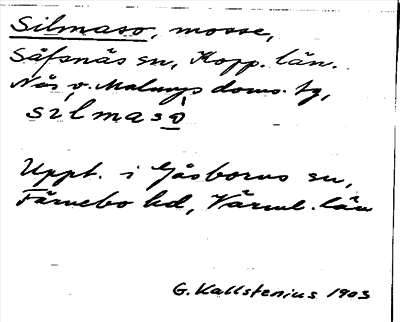 Silmaso, mosse,
Säfsnäs sn, Kopp. län.
Nås o. Malungs doms. tg,
sìlmasò
Uppt. i Gåsborns sn,
Färnebo hd, Värml. län
G. Kallstenius 1903